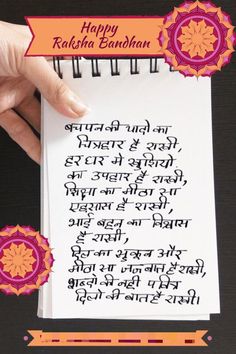 Happy
Raksha Bandhan
बचपन की यादों का
चित्रहार है राखी,
हर घर में खुशियों
का उपहार है राखी,
रिश्तों का मीठा सा
एहसास है राखी,
भाई बहन का विश्वास
है राखी,
दिल का सुकून और
मीठा सा जज्बात है राखी,
शब्दों की नहीं पवित्र
दिलों की बात है राखी।